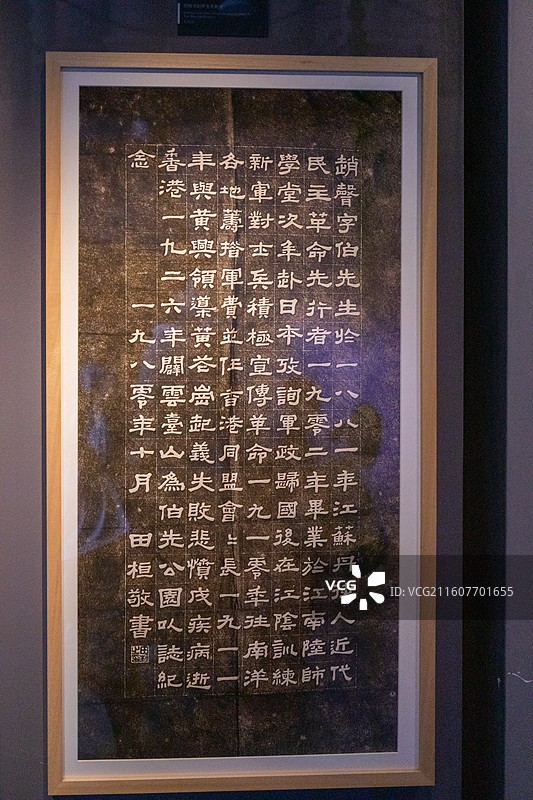 趙聲字伯先生於一八八一年江蘇丹
人近代
民主革命先行者一九零二年畢業於江南陸師
學堂次年赴日本攷詢軍政歸國後在江陰訓練
新軍對士兵積極宣傳革命一九一零年往南洋
各地籌措軍費並任香港同盟會〻長一九一一
年與黃興領導黃花崗起義失敗悲憤成疾病逝
香港一九二六年闢雲臺山為伯先公園以誌紀
念 一九八零年十月 田桓敬書
VCG
ID: VCG211607701655